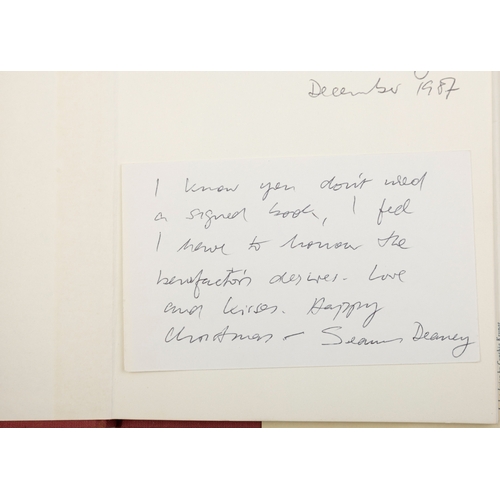 December 1987
I know you don't need
a signed book, I feel
I have to honour the
benefactor's desires. Love
and kisses. Happy
Christmas - Seamus Deaney